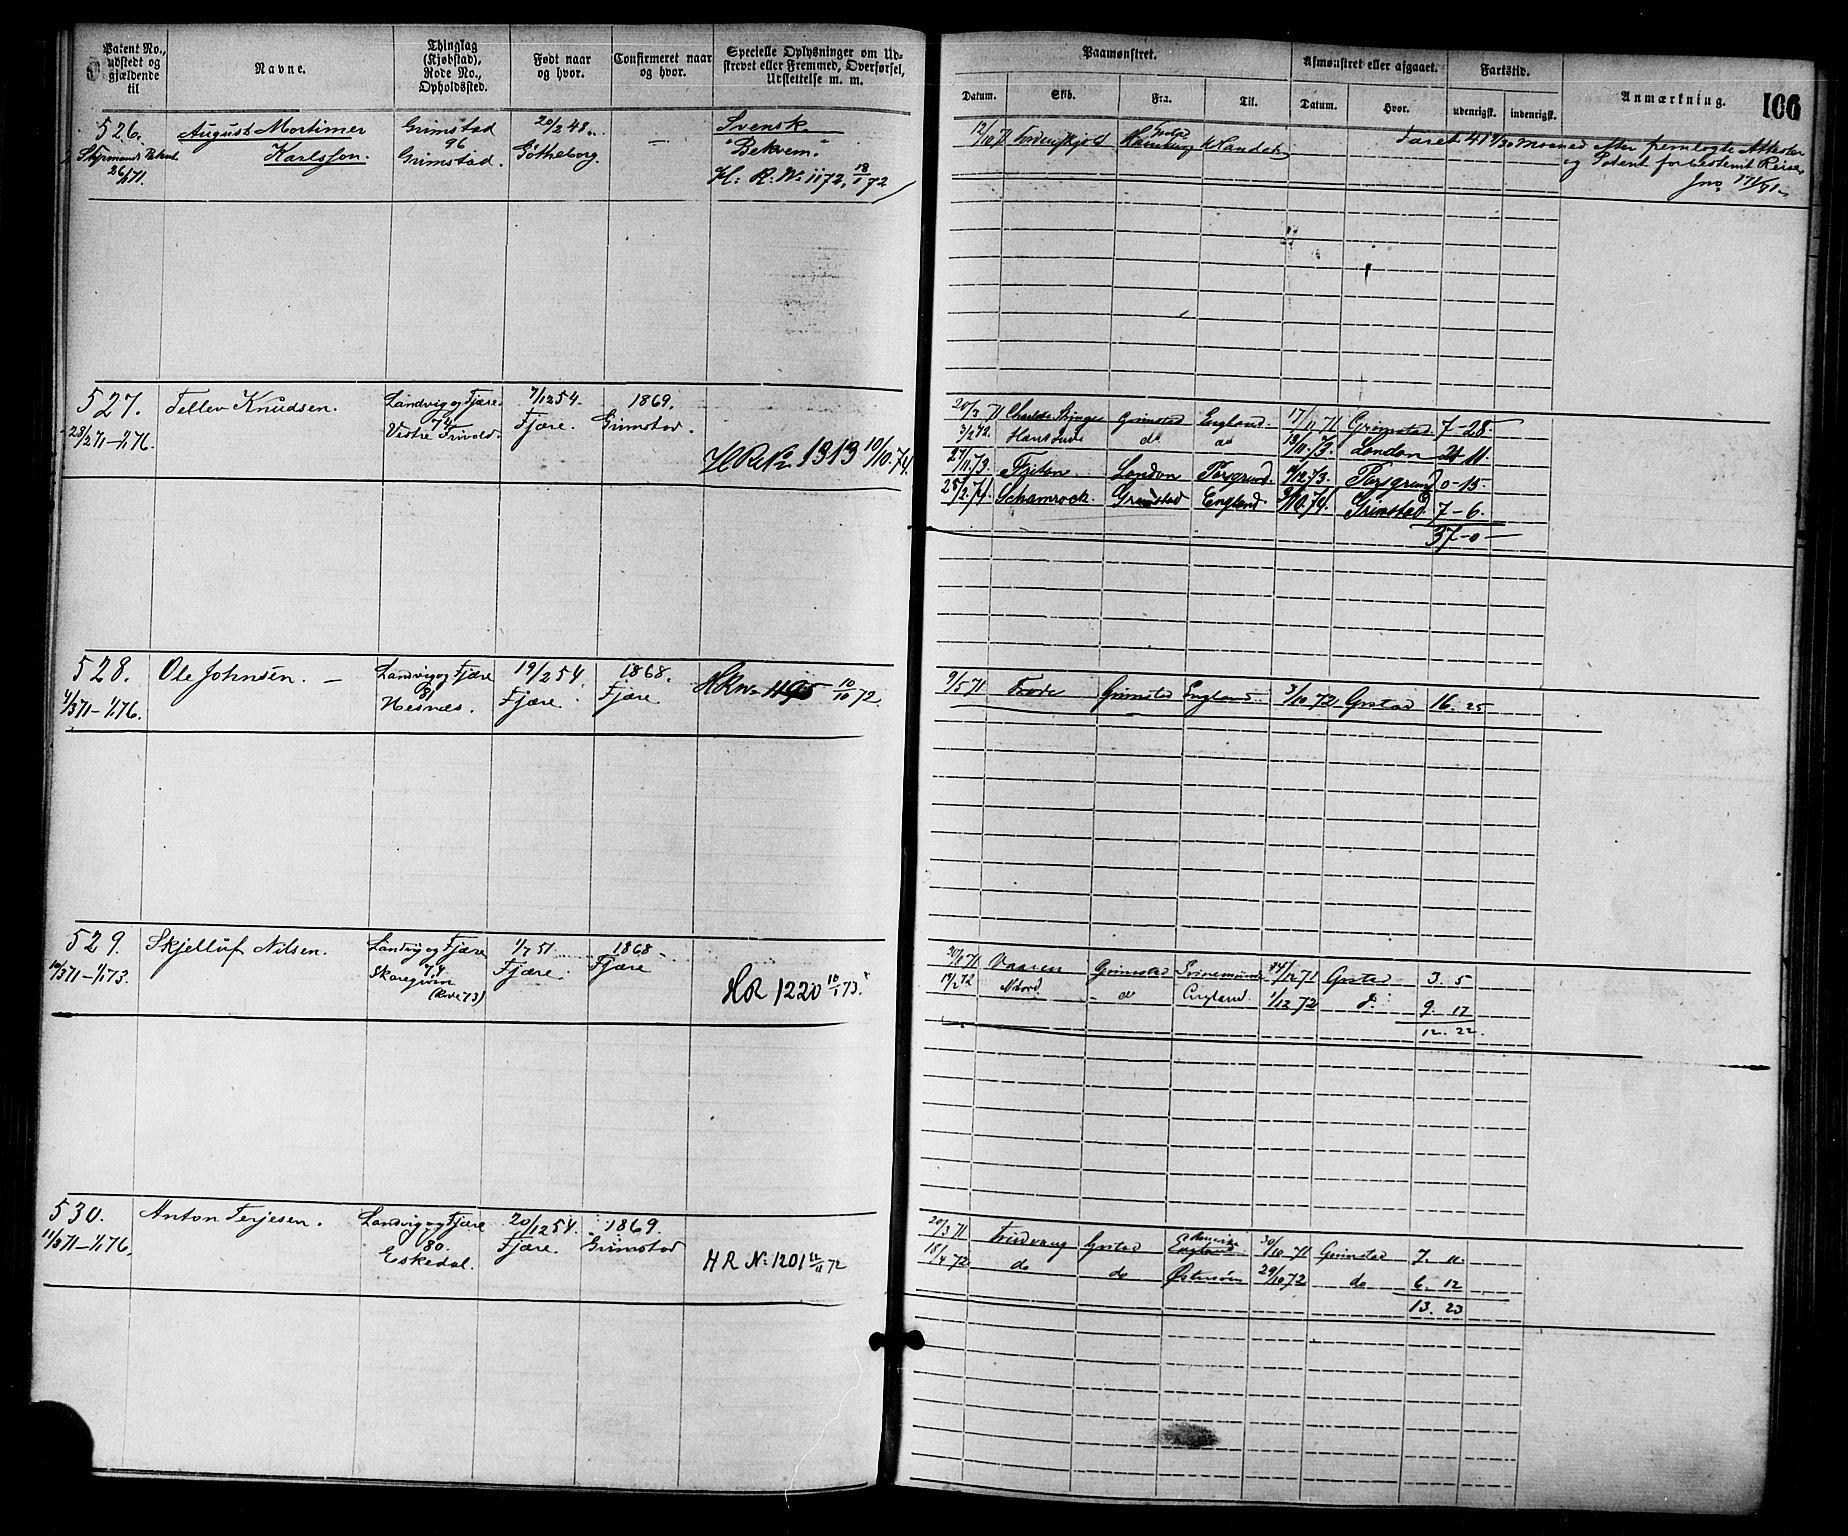 Patent No.,
udstedt og
gjældende
til
Navne.
Thinglag
(Kjøbstad),
Rode No.,
Opholdssted.
Født naar
og hvor.
Confirmeret naar
og hvor.
Specielle Oplysninger om Ud-
skrevet eller Fremmed, Overførsel,
Udslettelse m. m.
526.
26/1 71.
August Mortimer
Karlsson.
Grimstad
96
Grimstad.
20/2 48.
Gøtheborg.
—
Svensk.
"Bekvem."
H: R: No 1172, 18/1 72
527.
28/2 71 – 1/1 76.
Tellev Knudsen.
Landvig og Fjære.
74
Vestre Trivold.
7/12 54.
Fjære.
1869.
Grimstad.
H R No 1313 10/10. 74.
528.
4/3 71 – 1/1 76.
Ole Johnsen. –
Landvig og Fjære
81
Hesnes.
19/2 54.
Fjære.
1868.
Fjære
H R No 1195 10/10 72
529.
10/3 71 – 1/1 73.
Skjelluf Nilsen.
Landvig og Fjære
74
(Rode 73)
1/7 51.
Fjære.
1868
Fjære
H R 1220 10/1 73.
530.
11/3 71 – 1/1 76.
Anton Terjesen.
Landvig og Fjære
80.
Eskedal.
20/12 54.
Fjære.
1869.
Grimstad
H R No 1201 12/11 72
Paamønstret.
Afmønstret eller afgaaet.
Fartstid.
Anmærkning.
106
Datum.
Skib.
Fra.
Til.
Datum.
Hvor.
udenrigsk.
indenrigsk.
12/10 71 Tordenskjold Hamburg
Faret 41 9/30 Maaned efter fremlagte Attester
og Patent for bestemt Reise
Jno 171/71
20/3 71 Grimstad England. 17/11 71 Grimstad 7 – 28.
3/2 72. do do 13/11. 73. London 21 11.
27/11. 73. Triton. London Porsgrund. 11/12. 73. Porsgrund 0 – 15.
25/2. 74. Schamrock. Grimstad England 9/10. 74. Grimstad 7 – 6.
37 – 0 –
9/5 71 Frode Grimstad England 3/10. 72 Grstad 16. 25
20/6 71 Grimstad Svinemünde 24/12 71 Grstad 3. 5
19/2 72 do England. 1/12 72 do 9. 17
12. 22.
20/3 71 Fredvang Grstad England 30/10 71 Grimstad 7. 11.
18/4 72 do do Østersøen 29/10 72 do 6. 12
13. 23